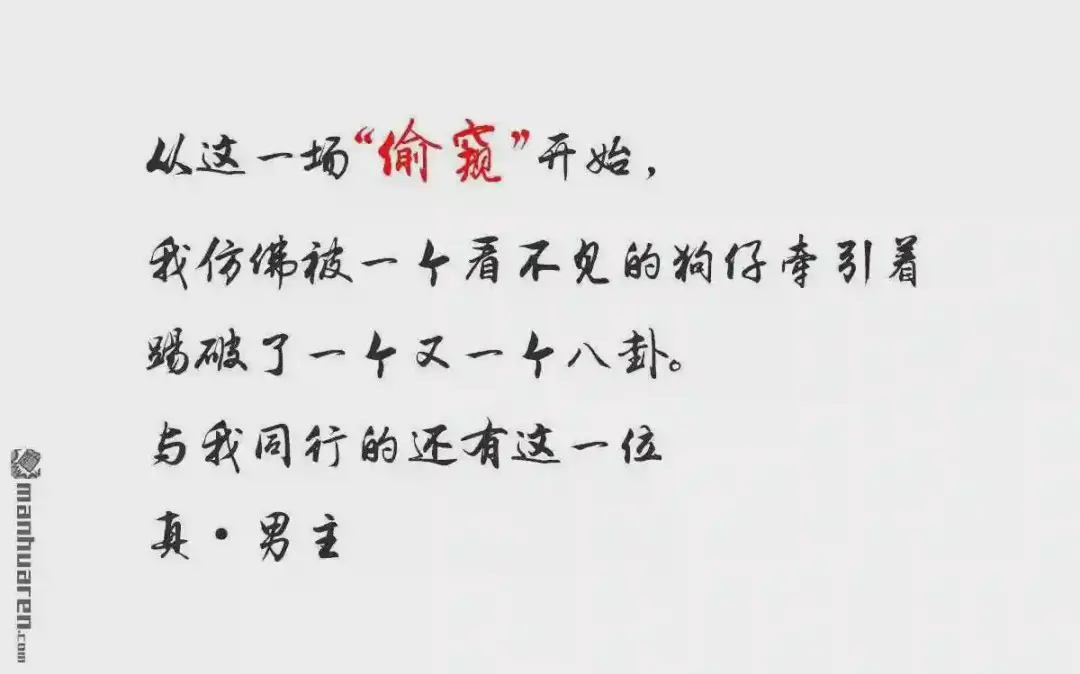 从这一场“偷窥”开始，
我仿佛被一个看不见的狗仔牵引着
踢破了一个又一个八卦。
与我同行的还有这一位
真·男主
manhuaren.com